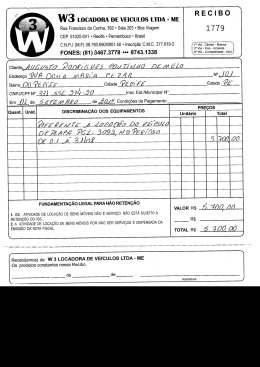 3
W
W3 LOCADORA DE VEICULOS LTDA - ME
Rua Francisco da Cunha, 392 • Sala 203 • Boa Viagem
CEP. 51020-041 • Recife • Pernambuco - Brasil
C.N.P.J (M.F) 08.780.690/0001-50 • Inscrição C.M.C. 377.019-3
FONES: (81) 3467.3778 8743.1338
RECIBO
1779
1ª Via - Cliente - Branca
Cliente AUGUSTO RODRIGUES COUTINHO DE MELO
Endereço RUA DONA MARIA CEZAR Nº 101
Bairro RECIFE Cidade RECIFE Estado PE
CNPJ/CPF Nº Insc. Est./Municipal Nº
Em 01 de SETEMBRO de Condições de Pagamento
Quant. Unid. DISCRIMINAÇÃO DOS EQUIPAMENTOS PREÇOS
Unitário Total
REFERENTE A LOCAÇÃO DO VEICULO
DE PLACA PGL. 3093, NO PERIODO 5.700,00
DE 01 A 31/08
FUNDAMENTAÇÃO LEGAL PARA NÃO RETENÇÃO
1. ISS - ATIVIDADE DE LOCAÇÃO DE BENS MÓVEIS NÃO É SERVIÇO, NÃO ESTÁ SUJEITO A
RETENÇÃO DO ISS.
2. A ATIVIDADE DE LOCAÇÃO DE BENS MÓVEIS POR NÃO SER SERVIÇOS É DISPENSADA DA
EMISSÃO DA NOTA FISCAL.
VALOR R$ 5.700,00
TOTAL R$ 5.700,00
Recebi(emos) de W 3 LOCADORA DE VEICULOS LTDA - ME
Os produtos constantes nesse Recibo.
de de
Assinatura